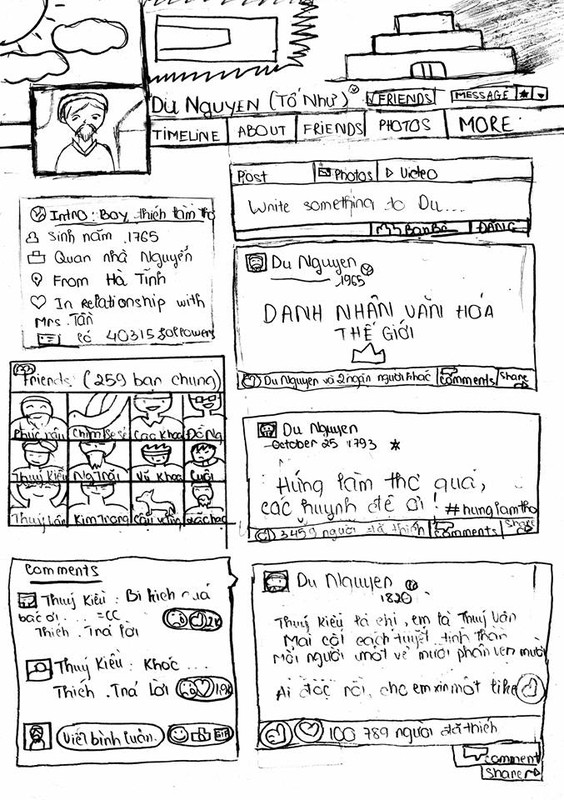 Du Nguyen (Tố Như)
FRIENDS
MESSAGE
TIMELINE
ABOUT
FRIENDS
PHOTOS
MORE
Post
Photos
Video
Write something to Du....
ĐĂNG
Intro: Boy thích làm thơ
Sinh năm 1765
Quan nhà Nguyễn
From Hà Tĩnh
In Relationship with
Mrs. Tần
Có 40315 followers
Du Nguyen
1965
DANH NHÂN VĂN HÓA
THẾ GIỚI
Du Nguyen và 2 ngàn người khác
comments
Share
Friends (259 bạn chung)
Thuý Kiều
Ng Trãi
Vũ Khoa
Cuội
Thuý Vân
Kim Trọng
Cậu Vàng
Du Nguyen
October 25 1793
Hứng làm thơ quá,
các huynh đệ ơi! #hunglamtho
3459 người đã thích
comments
Share
comments
Thuý Kiều: Bi kịch quá
bác ơi... =CC
Thích . Trả lời
2K
Thuý Kiều: Khóc ...
Thích . Trả Lời
1,9K
Viết bình luận.
GIF
Du Nguyen
1820
Thuý Kiều là chị, em là Thuý Vân
Mai cốt cách tuyết tinh thần
Mỗi người một vẻ mười phân vẹn mười
Ai đọc rồi, cho em xin một like
100 789 người đã thích
comment
Share